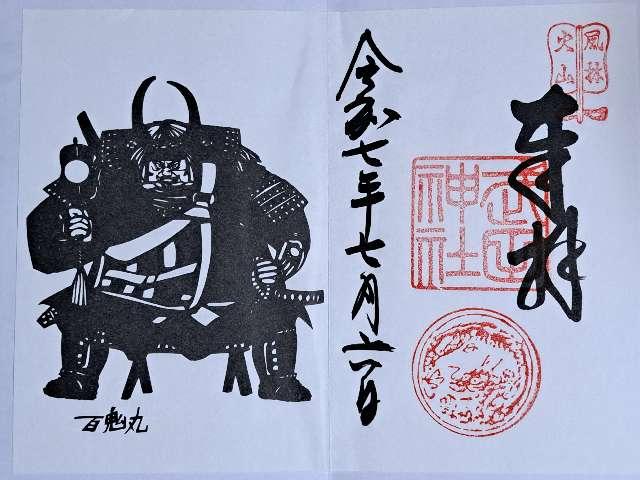 風林
火山
奉拝
武田
神社
令和七年七月六日
百鬼丸